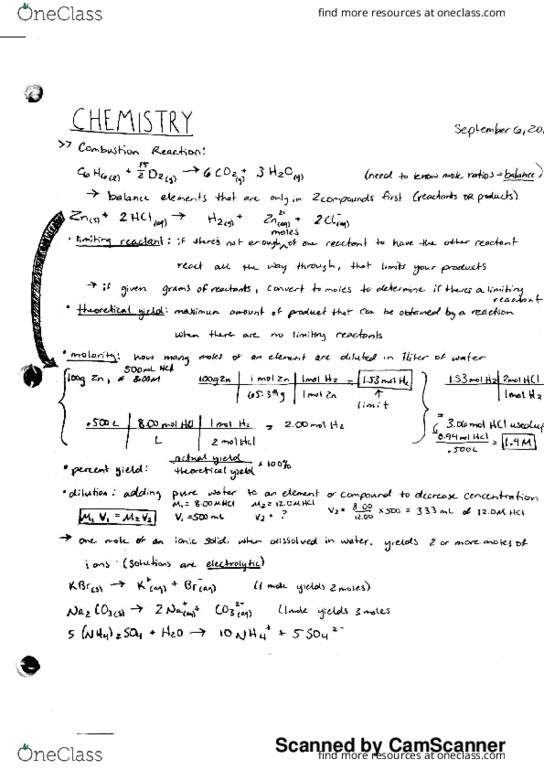 OneClass find more resources at oneclass.com
CHEMISTRY
September 6, 20
>> Combustion Reaction:
C6H6(l) + 15/2 O2(g) → 6 CO2(g) + 3 H2O(g) (need to know mole ratios = balance)
→ balance elements that are only in 2 compounds first (reactants OR products)
Zn(s) + 2 HCl(aq) → H2(g) + Zn2+(aq) + 2Cl-(aq)
• limiting reactant: if there's not enough moles of one reactant to have the other reactant
react all the way through, that limits your products
→ if given grams of reactants, convert to moles to determine if there's a limiting
reactant
• theoretical yield: maximum amount of product that can be obtained by a reaction
when there are no limiting reactants
• molarity: how many moles of an element are diluted in 1 liter of water
500mL HCl
100g Zn, 8.00M 100g Zn | 1 mol Zn | 1mol H2 = 1.53 mol H2 1.53 mol H2 | 2mol HCl
65.39g | 1mol Zn ↑ 1mol H2
limit
.500L | 8.00 mol HCl | 1mol H2 = 2.00 mol H2 =
L | 2 mol HCl 3.06 mol HCl used up
0.94 mol HCl / .500L = 1.9M
• percent yield: actual yield / theoretical yield × 100%
• dilution: adding pure water to an element or compound to decrease concentration
M1 V1 = M2 V2 M1 = 8.00M HCl M2 = 12.0M HCl V2 = 8.00/12.00 × 500 = 333 mL of 12.0M HCl
V1 = 500mL V2 = ?
→ one mole of an ionic solid, when dissolved in water, yields 2 or more moles of
ions (solutions are electrolytic)
KBr(s) → K+(aq) + Br-(aq) (1 mole yields 2 moles)
Na2CO3(s) → 2Na+(aq) + CO3 2-(aq) (1mole yields 3 moles)
5 (NH4)2SO4 + H2O → 10NH4+ + 5SO4 2-
Scanned by CamScanner
OneClass find more resources at oneclass.com